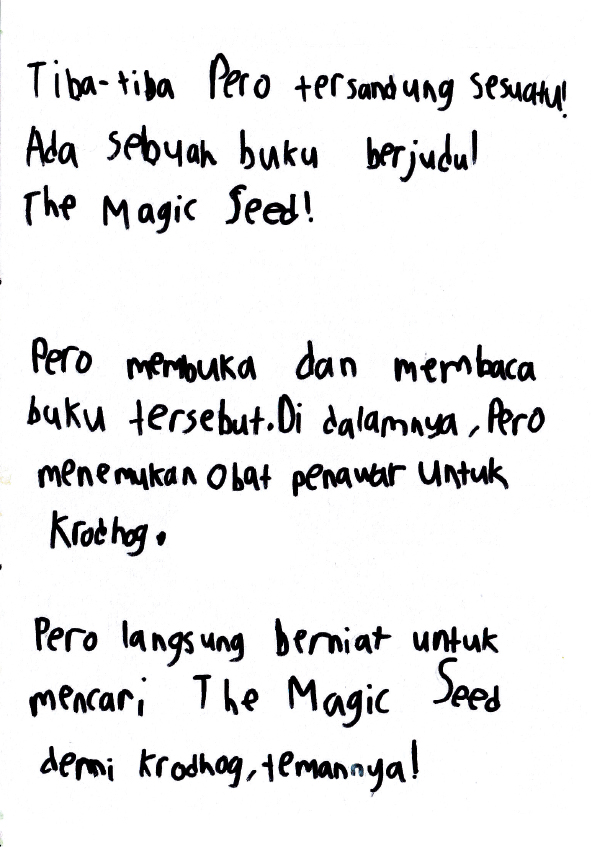 Tiba-tiba Pero tersandung sesuatu!
Ada sebuah buku berjudul
The Magic Seed!
Pero membuka dan membaca
buku tersebut. Di dalamnya, Pero
menemukan obat penawar untuk
Krodhog.
Pero langsung berniat untuk
mencari The Magic Seed
demi krodhog, temannya!